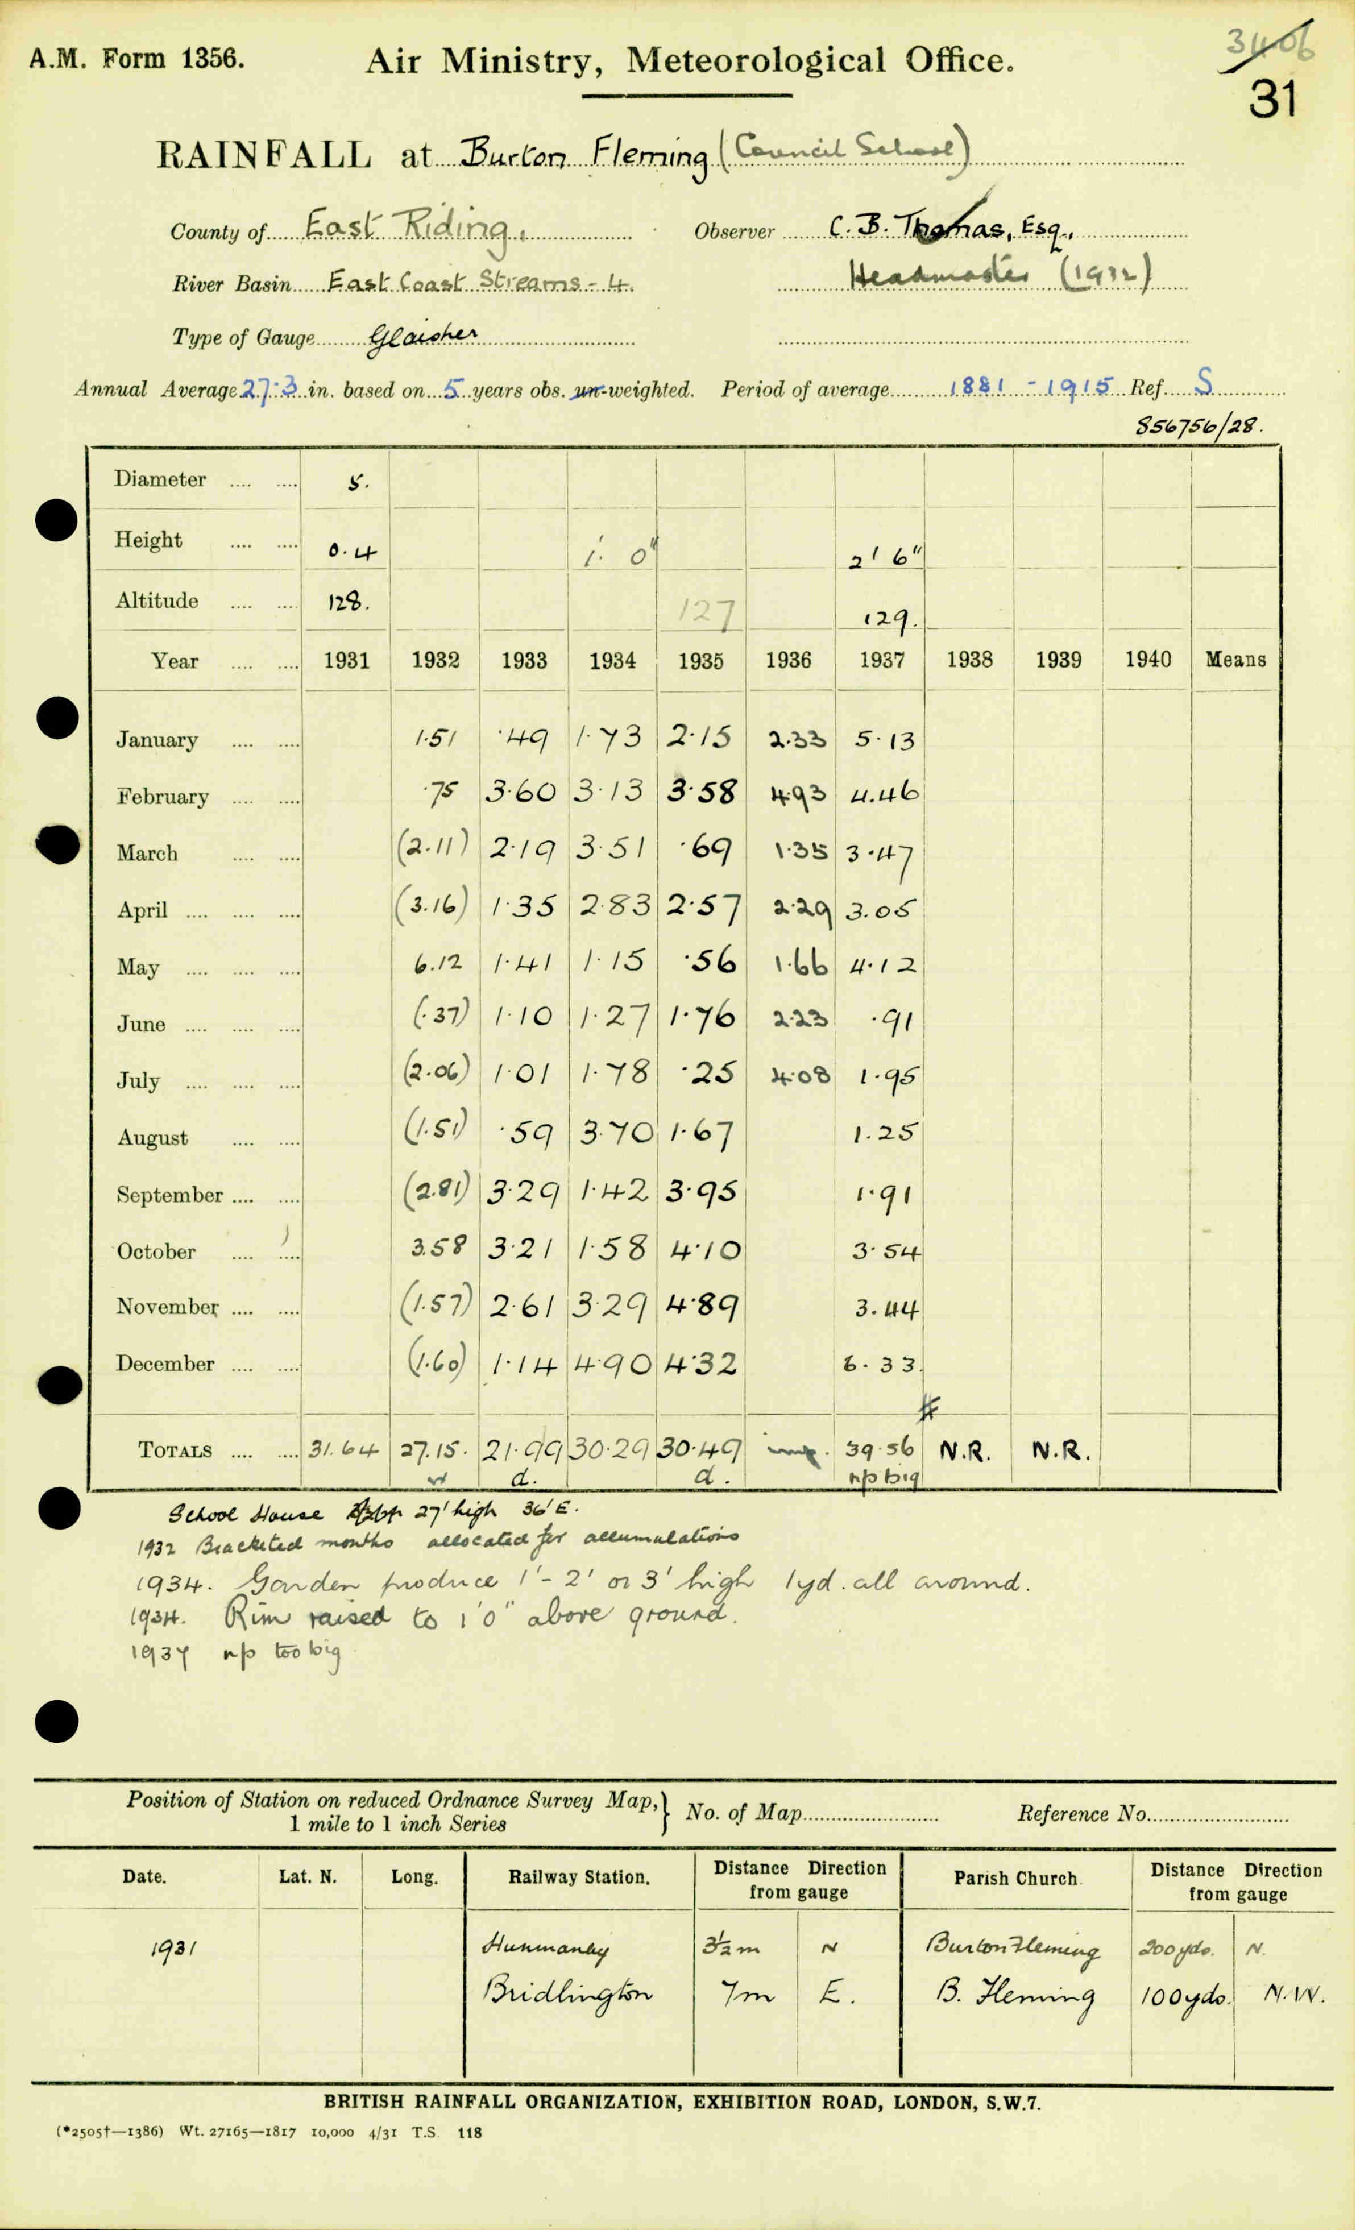 3406
A.M. Form 1356. Air Ministry, Meteorological Office.
31
RAINFALL at Burton Fleming (Council School)
County of East Riding. Observer C. B. Thomas, Esq.,
River Basin East Coast Streams - 4. Headmaster (1932)
Type of Gauge Glaisher
Annual Average 27.3 in. based on 5 years obs. un-weighted. Period of average 1881 - 1915 Ref. S
856756/28.
Diameter 5.
Height 0.4 1. 0" 2' 6"
Altitude 128. 127 129.
Year 1931 1932 1933 1934 1935 1936 1937 1938 1939 1940 Means
January 1.51 .49 1.73 2.15 2.33 5.13
February .75 3.60 3.13 3.58 4.93 4.46
March (2.11) 2.19 3.51 .69 1.35 3.47
April (3.16) 1.35 2.83 2.57 2.29 3.05
May 6.12 1.41 1.15 .56 1.66 4.12
June (.37) 1.10 1.27 1.76 2.23 .91
July (2.06) 1.01 1.78 .25 4.08 1.95
August (1.51) .59 3.70 1.67 1.25
September (2.81) 3.29 1.42 3.95 1.91
October 3.58 3.21 1.58 4.10 3.54
November (1.57) 2.61 3.29 4.89 3.44
December (1.60) 1.14 4.90 4.32 6.33
TOTALS 31.64 27.15. 21.99 30.29 30.49 imp. 39.56 N.R. N.R.
d. d. n/p big
School House 27' high 36' E.
1932 Bracketed months allocated for accumulations
1934. Garden produce 1'- 2' or 3' high 1yd. all around.
1934. Rim raised to 1'0" above ground.
1937 n/p too big
Position of Station on reduced Ordnance Survey Map,
1 mile to 1 inch Series } No. of Map Reference No.
Date. Lat. N. Long. Railway Station. Distance Direction from gauge Parish Church Distance Direction from gauge
1931 Hunmanby 3½m N Burton Fleming 200yds. N.
Bridlington 7m E. B. Fleming 100yds. N.W.
BRITISH RAINFALL ORGANIZATION, EXHIBITION ROAD, LONDON, S.W.7.
(*2505†—1386) Wt. 27165—1817 10,000 4/31 T.S. 118